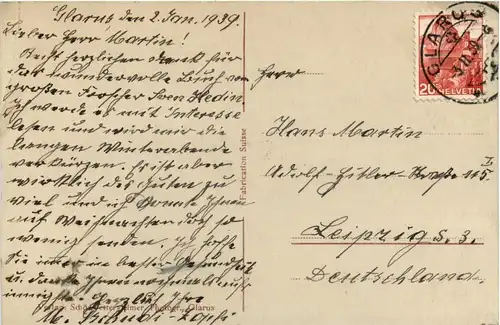 Glarus den 2. Jan. 1939.
Lieber Herr Martin!
Recht herzlichen Dank für
das wundervolle Buch vom
großen Forscher Sven Hedin.
Ich werde es mit Interesse
lesen und wird mir die
langen Winterabende
verkürzen. Es ist aber
wirklich des Guten zu
viel und ich konnte Ihnen
auf Weihnachten doch so
wenig senden. Ich hoffe
Sie immer in bester Gesundheit
u. danke Ihnen nochmals
Herzlichst Ihre
M. Tschudi
Schönwetter-Elmer, Glarus
Fabrication Suisse
GLARUS
20 HELVETIA
Herrn
Hans Martin
Adolf-Hitler-Straße 115 I.
Leipzig S. 3.
Deutschland.